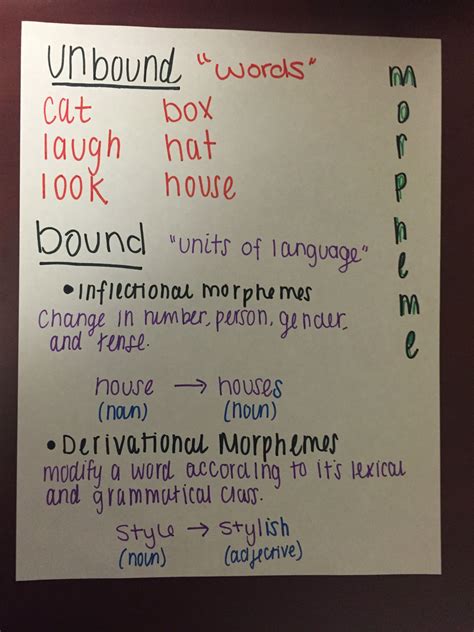 unbound "words"
cat box
laugh hat
look house
bound "units of language"
• Inflectional morphemes
Change in number, person, gender,
and tense.
house → houses
(noun) (noun)
• Derivational Morphemes
modify a word according to it's lexical
and grammatical class.
style → stylish
(noun) (adjective)
morpheme